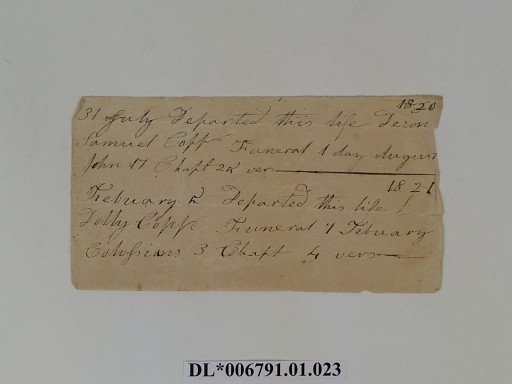 1820
31 July Departed this life Deron
Samuel Copp Funeral 1 day August
John 17 Chapt 24 vers
1821
Febuary 2 Departed this life
Dolly Copps Funeral 7 Febuary
Colossians 3 Chapt 4 vers
DL*006791.01.023